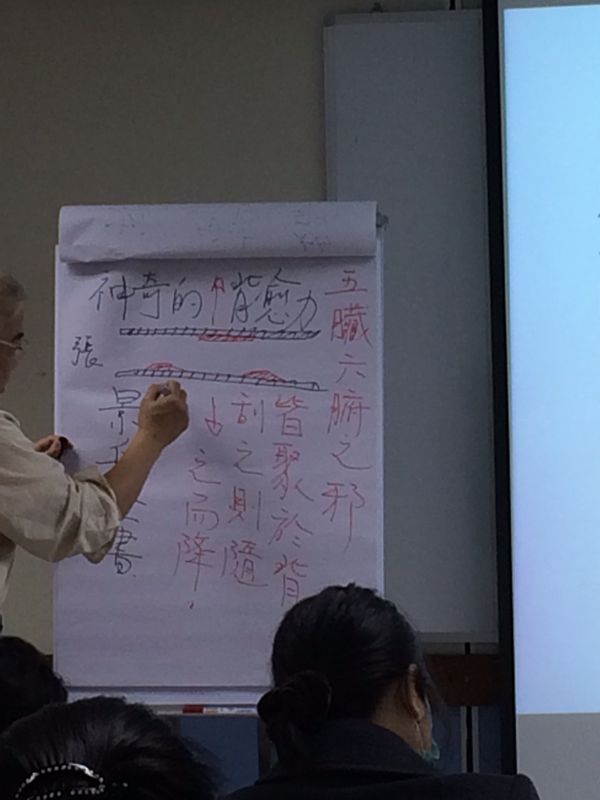 神奇的背愈力
五臟六腑之邪
皆聚於背
刮之則隨
之而降，
張景
書.